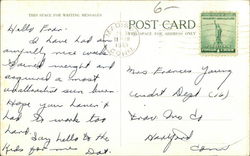 THIS SPACE FOR WRITING MESSAGES
POST CARD
THIS SPACE FOR ADDRESS ONLY
6-
Hello Fran:
I have had an
awfully nice week.
Gained weight and
acquired a most
unattractive sun burn.
Hope you haven't
had to work too
hard. Say hello to the
kids for me Dot.
Mrs Frances Young
Credit Dept (16)
Fox Co
Hartford
Conn